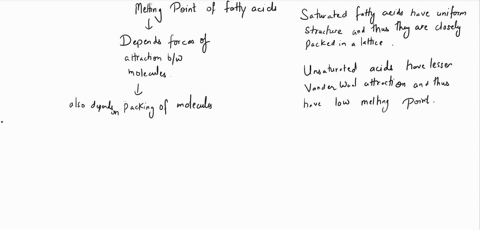 Melting Point of fatty acids
Depends forces of
attraction b/w
molecules.
also depends on packing of molecules
Saturated fatty acids have uniform
structure and thus they are closely
packed in a lattice.
Unsaturated acids have lesser
Vander Waal attraction and thus
have low melting point.